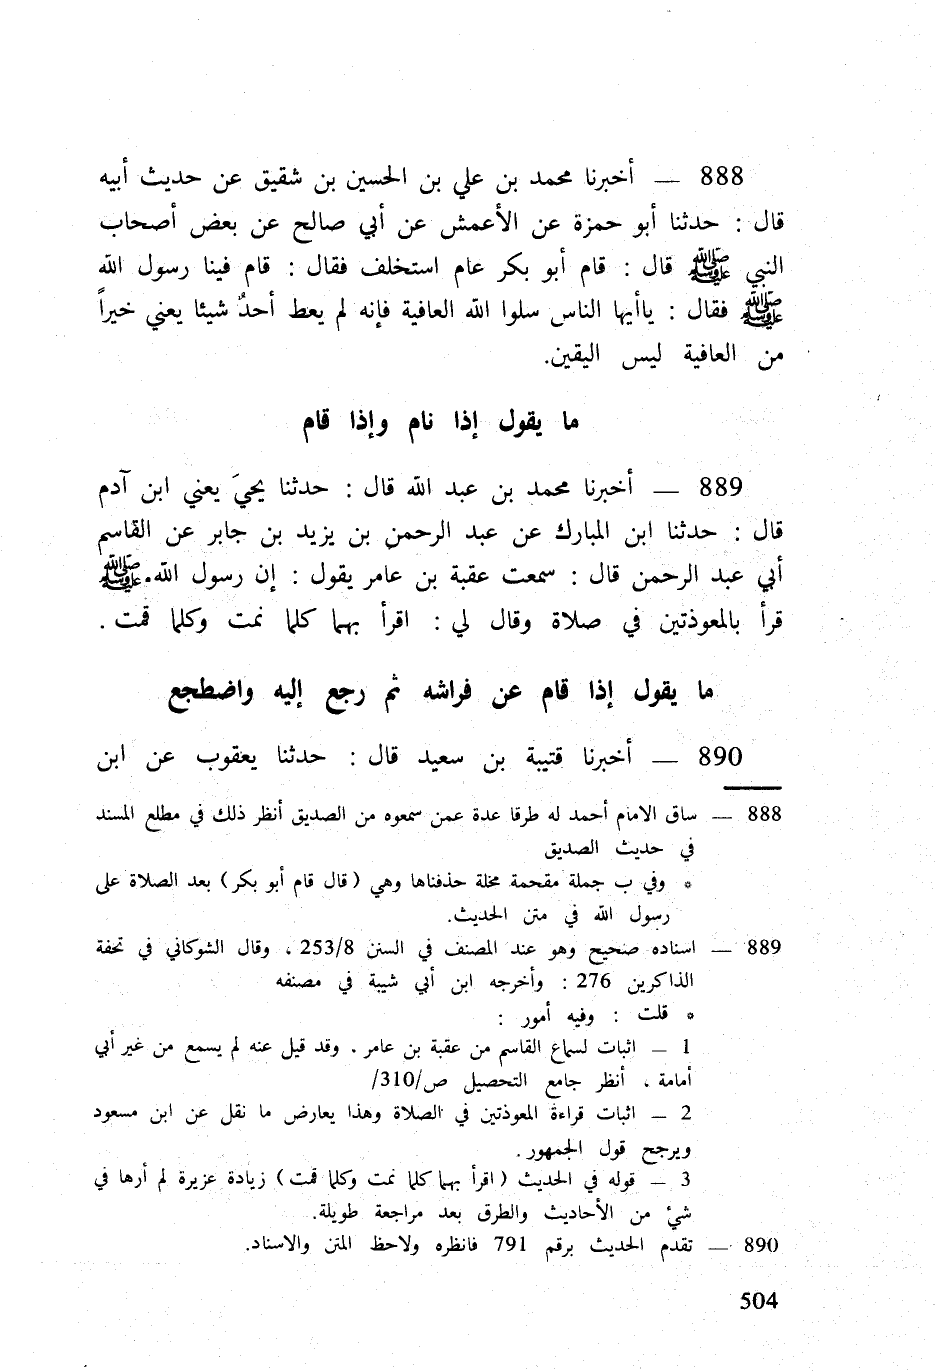 888 — أخبرنا محمد بن علي بن الحسين بن شقيق عن حديث أبيه
قال : حدثنا أبو حمزة عن الأعمش عن أبي صالح عن بعض أصحاب
النبي ﷺ قال : قام أبو بكر عام استخلف فقال : قام فينا رسول الله
ﷺ فقال : ياأيها الناس سلوا الله العافية فإنه لم يعط أحدٌ شيئا يعني خيراً
من العافية ليس اليقين.
ما يقول إذا نام وإذا قام
889 — أخبرنا محمد بن عبد الله قال : حدثنا يحيَ يعني ابن آدم
قال : حدثنا ابن المبارك عن عبد الرحمن بن يزيد بن جابر عن القاسم
أبي عبد الرحمن قال : سمعت عقبة بن عامر يقول : إن رسول الله ﷺ
قرأ بالمعوذتين في صلاة وقال لي : اقرأ بهما كلما نمت وكلما قمت .
ما يقول إذا قام عن فراشه ثم رجع إليه واضطجع
890 — أخبرنا قتيبة بن سعيد قال : حدثنا يعقوب عن ابن
888 — ساق الامام أحمد له طرقا عدة عمن سمعوه من الصديق أنظر ذلك في مطلع المسند
في حديث الصديق
* وفي ب جملة مقحمة مخلة حذفناها وهي (قال قام أبو بكر) بعد الصلاة على
رسول الله في متن الحديث.
889 — اسناده صحيح وهو عند المصنف في السنن 253/8 ، وقال الشوكاني في تحفة
الذاكرين 276 : وأخرجه ابن أبي شيبة في مصنفه
* قلت : وفيه أمور :
1 — اثبات لسماع القاسم من عقبة بن عامر . وقد قيل عنه لم يسمع من غير أبي
أمامة ، أنظر جامع التحصيل ص/310/
2 — اثبات قراءة المعوذتين في الصلاة وهذا يعارض ما نقل عن ابن مسعود
ويرجح قول الجمهور .
3 — قوله في الحديث (اقرأ بهما كلما نمت وكلما قمت) زيادة عزيرة لم أرها في
شيء من الأحاديث والطرق بعد مراجعة طويلة.
890 — تقدم الحديث برقم 791 فانظره ولاحظ المتن والاسناد.
504